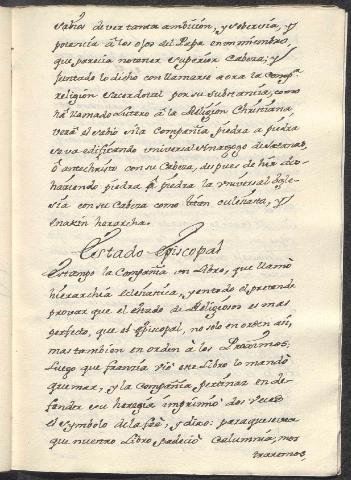 sabios de ver tanta ambicion, y sobervia, y
potencia â los ojos del Papa en un miembro,
que parecia no tener superior Cabeza; y
juntado lo dicho con llamarse aora la Comp.ª
religion Sacerdotal por su substancia, como
ha llamado Lutero â la Religion Christiana
verá el sabio si la Compañia piedra a piedra
se va edificando universal sinagoga de Satanas,
ô antechristo con su Cabeza, despues de
haciendo piedra â piedra la universal Igle-
sia con su Cabeza como titan eclesiasta, y
herarcha.
Estado Episcopal
Estampo la Compañia un Libro, que llamò
hierarchia Eclesiastica, y en todo el pretende
provar que el estado de Religiosos es mas
perfecto, que el Episcopal, no solo en orden asi,
mas tambien en orden â los Proximos,
Luego que francia viò este Libro lo mandò
quemar, y la Compañia pertinaz en de-
fender su heregia imprimiò dos veces
el symbolo de la feè, y dixo: para que se vea
que nuestro Libro padeciò Calumnia, mos
traremos,